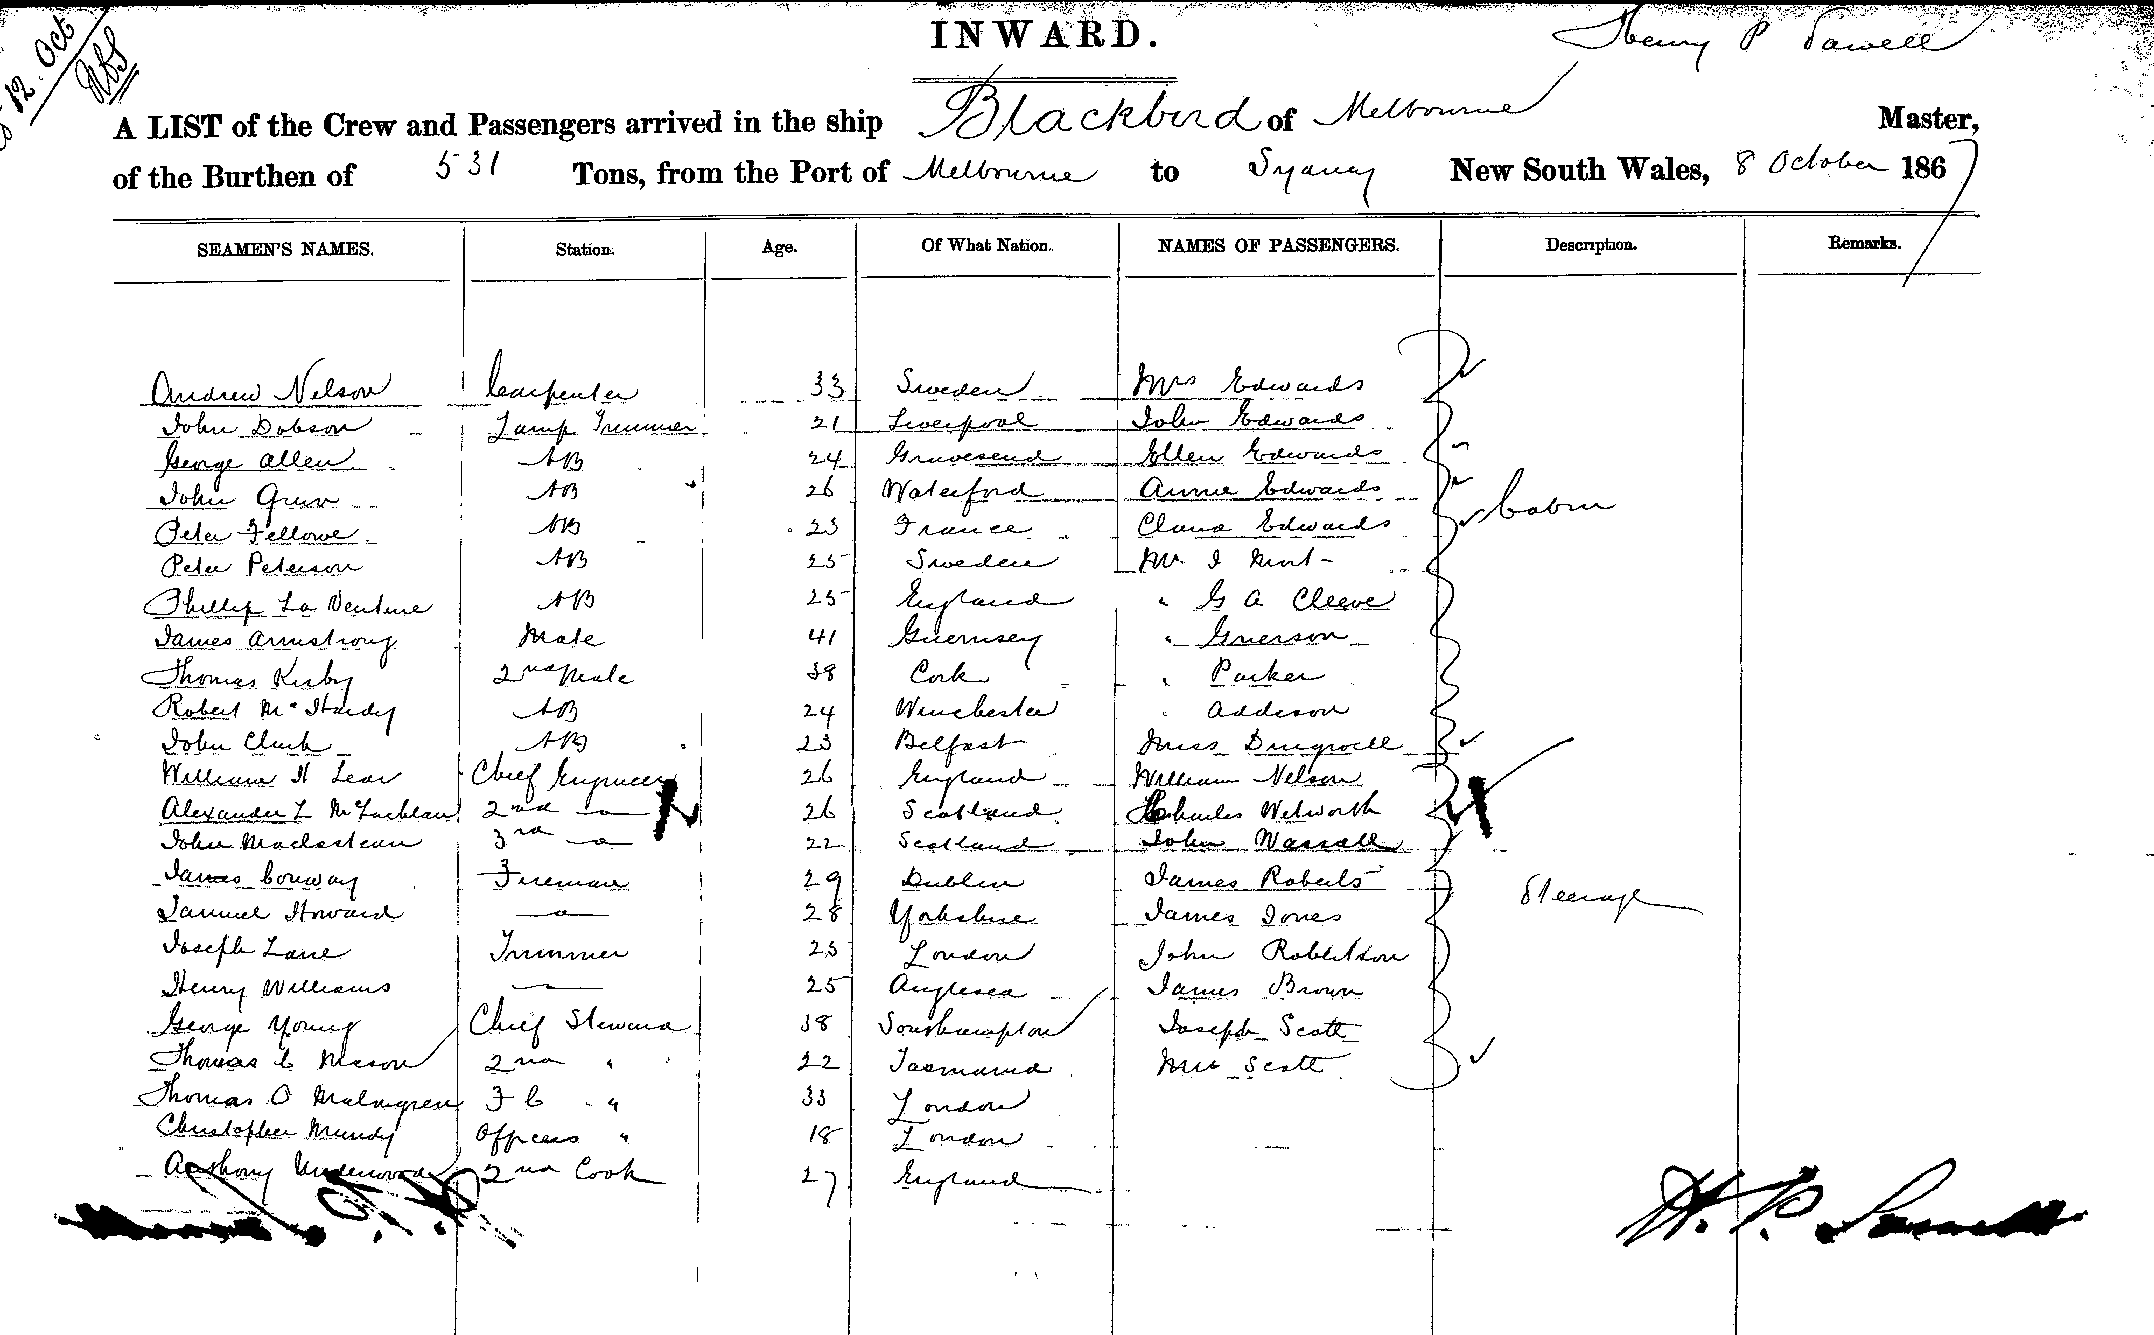 12 Oct
INWARD.
Henry P Sawell
A LIST of the Crew and Passengers arrived in the ship Blackbird of Melbourne Master,
of the Burthen of 531 Tons, from the Port of Melbourne to Sydney New South Wales, 8 October 1867
SEAMEN'S NAMES. Station. Age. Of What Nation. NAMES OF PASSENGERS. Description. Remarks.
Andrew Nelson Carpenter 33 Sweden Mrs Edwards
John Dobson Lamp Trimmer 21 Liverpool John Edwards
George Allen AB 24 Gravesend Ellen Edwards
John AB 26 Waterford Annie Edwards
Peter Fellowe AB 23 France Clara Edwards Cabin
Peter Peterson AB 25 Sweden Mr I
Phillip La Venture AB 25 England " G A Cleeve
James Armstrong Mate 41 Guernsey " Grierson
Thomas Kirby 2nd Mate 38 Cork " Parker
Robert McHardy AB 24 Winchester " Addison
John Clark AB 23 Belfast Miss Dingwell
William H Lear Chief Engineer 26 England William Nelson
Alexander L McLachlan 2nd —"— 26 Scotland Charles Welworth
John 3rd —"— 22 Scotland John Wassall
James Conway Fireman 29 Dublin James Roberts
Samuel Howard —"— 28 Yorkshire James Jones Steerage
Joseph Lane Trimmer 23 London John Robertson
Henry Williams —"— 25 Anglesea James Brown
George Young Chief Steward 38 Southampton Joseph Scott
Thomas C Mason 2nd " 22 Tasmania Mrs Scott
Thomas O Malmgreen F C " 33 London
Christopher Mundy Officers " 18 London
Anthony Underwood 2nd Cook 27 England
H. P. Sawell